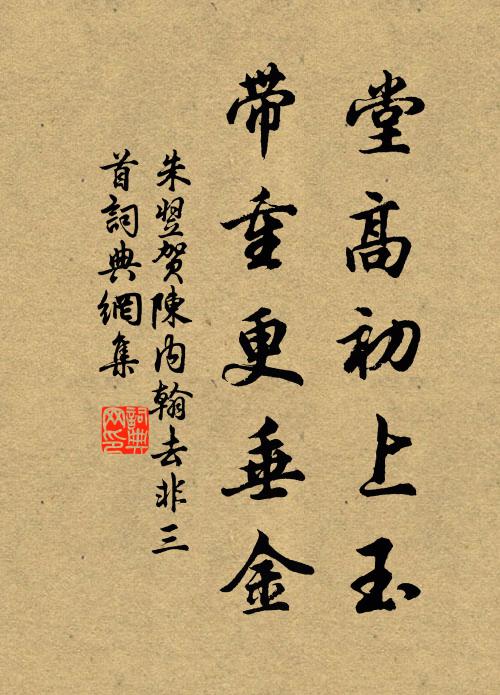 堂高初上玉
帶重更垂金
朱翌賀陳內翰去非三
首詞典網集
詞典
网印